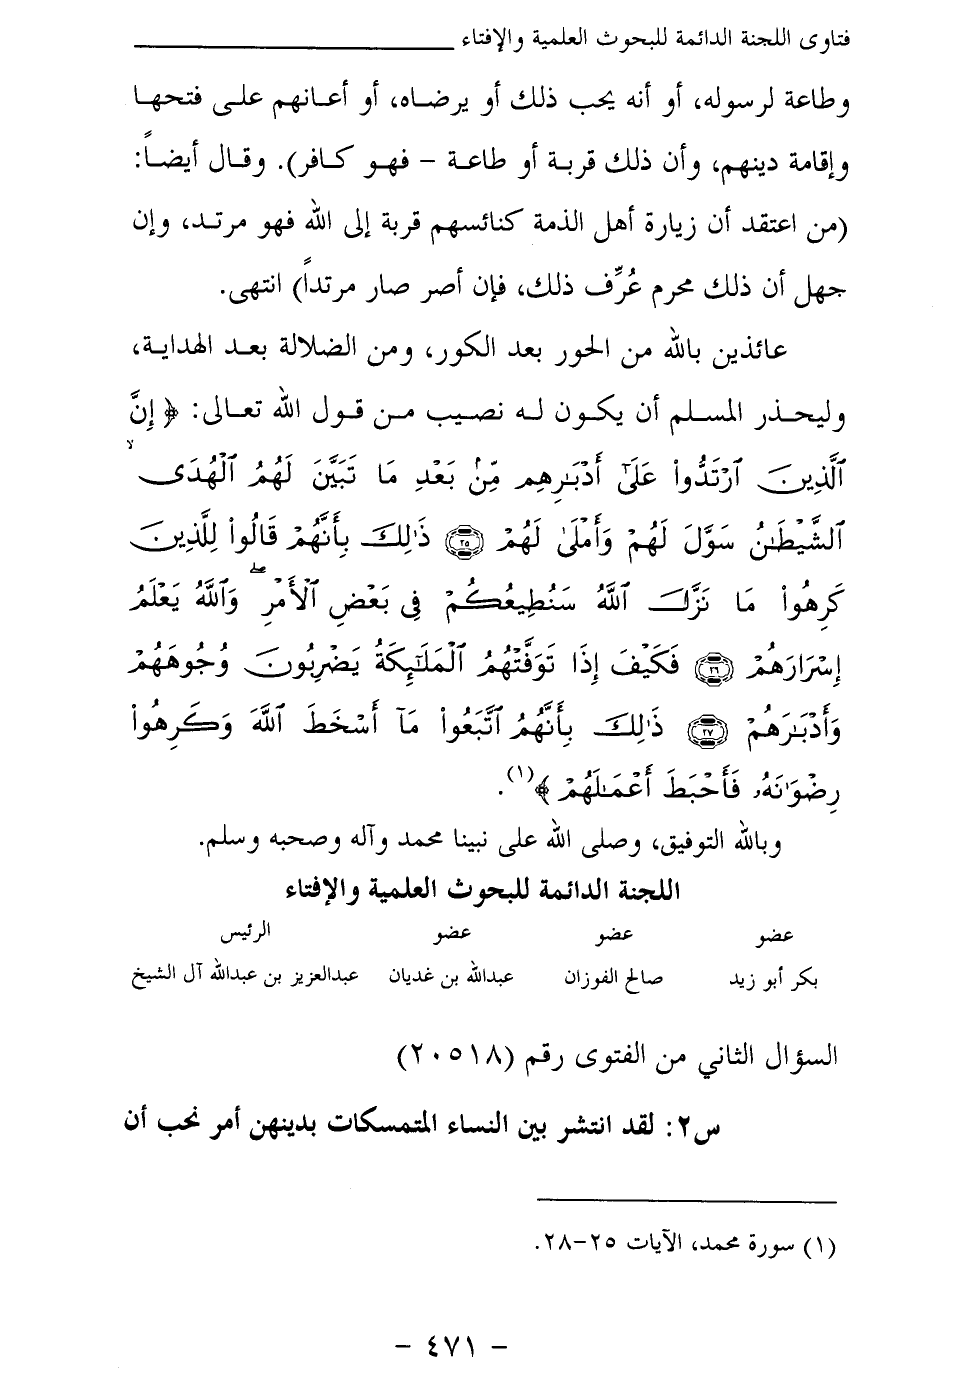 فتاوى اللجنة الدائمة للبحوث العلمية والإفتاء
وطاعة لرسوله، أو أنه يحب ذلك أو يرضاه، أو أعانهم على فتحها
وإقامة دينهم، وأن ذلك قربة أو طاعة - فهو كافر). وقال أيضاً:
(من اعتقد أن زيارة أهل الذمة كنائسهم قربة إلى الله فهو مرتد، وإن
جهل أن ذلك محرم عُرِّف ذلك، فإن أصر صار مرتداً) انتهى.
عائذين بالله من الحور بعد الكور، ومن الضلالة بعد الهداية،
وليحذر المسلم أن يكون له نصيب من قول الله تعالى: ﴿ إِنَّ
ٱلَّذِينَ ٱرْتَدُّوا۟ عَلَىٰٓ أَدْبَـٰرِهِم مِّنۢ بَعْدِ مَا تَبَيَّنَ لَهُمُ ٱلْهُدَى ۙ
ٱلشَّيْطَـٰنُ سَوَّلَ لَهُمْ وَأَمْلَىٰ لَهُمْ ﴿٢٥﴾ ذَٰلِكَ بِأَنَّهُمْ قَالُوا۟ لِلَّذِينَ
كَرِهُوا۟ مَا نَزَّلَ ٱللَّهُ سَنُطِيعُكُمْ فِى بَعْضِ ٱلْأَمْرِ ۖ وَٱللَّهُ يَعْلَمُ
إِسْرَارَهُمْ ﴿٢٦﴾ فَكَيْفَ إِذَا تَوَفَّتْهُمُ ٱلْمَلَـٰٓئِكَةُ يَضْرِبُونَ وُجُوهَهُمْ
وَأَدْبَـٰرَهُمْ ﴿٢٧﴾ ذَٰلِكَ بِأَنَّهُمُ ٱتَّبَعُوا۟ مَآ أَسْخَطَ ٱللَّهَ وَكَرِهُوا۟
رِضْوَٰنَهُۥ فَأَحْبَطَ أَعْمَـٰلَهُمْ ﴾(١).
وبالله التوفيق، وصلى الله على نبينا محمد وآله وصحبه وسلم.
اللجنة الدائمة للبحوث العلمية والإفتاء
عضو عضو عضو الرئيس
بكر أبو زيد صالح الفوزان عبدالله بن غديان عبدالعزيز بن عبدالله آل الشيخ
السؤال الثاني من الفتوى رقم (٢٠٥١٨)
س٢: لقد انتشر بين النساء المتمسكات بدينهن أمر نحب أن
(١) سورة محمد، الآيات ٢٥-٢٨.
- ٤٧١ -